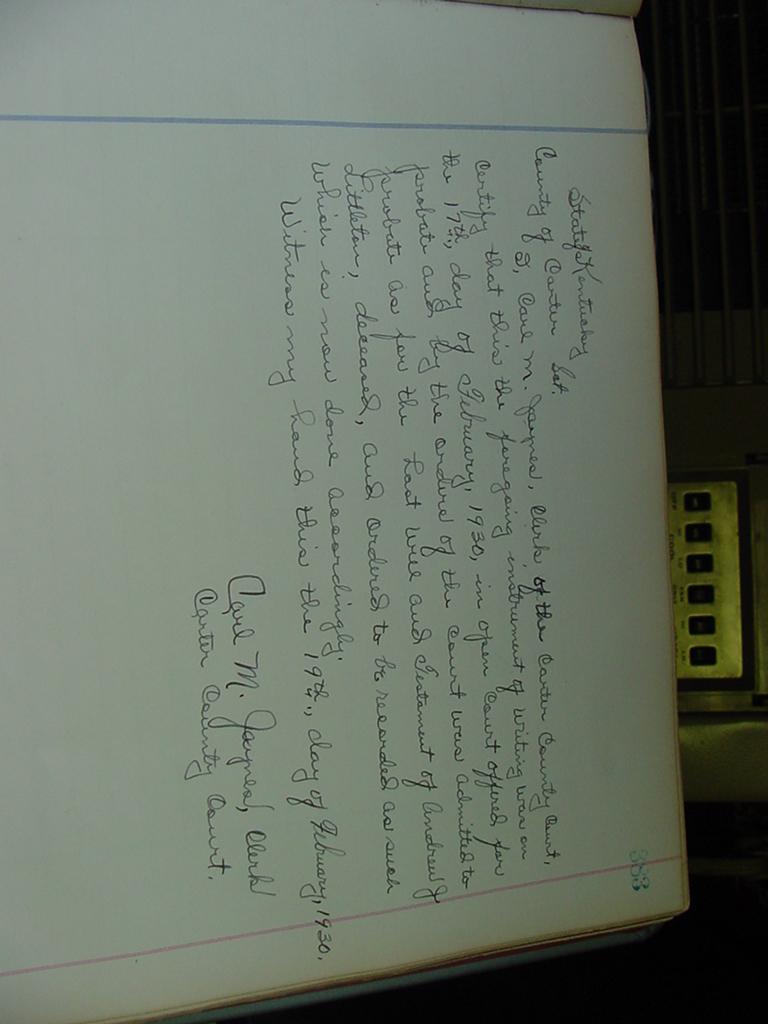 383
State of Kentucky
County of Carter Sct.
I, Carl M. Jaynes, Clerk, of the Carter County Court,
Certify that this the foregoing instrument of writing was on
the 17th, day of February, 1930, in open Court offered for
probate and by the order of the Court was admitted to
probate as for the Last Will and Testament of Andrew J
Littleton, deceased, and ordered to be recorded as such
which is now done accordingly.
Witness my hand this the 19th, day of February, 1930.
Carl M. Jaynes, Clerk
Carter County Court.